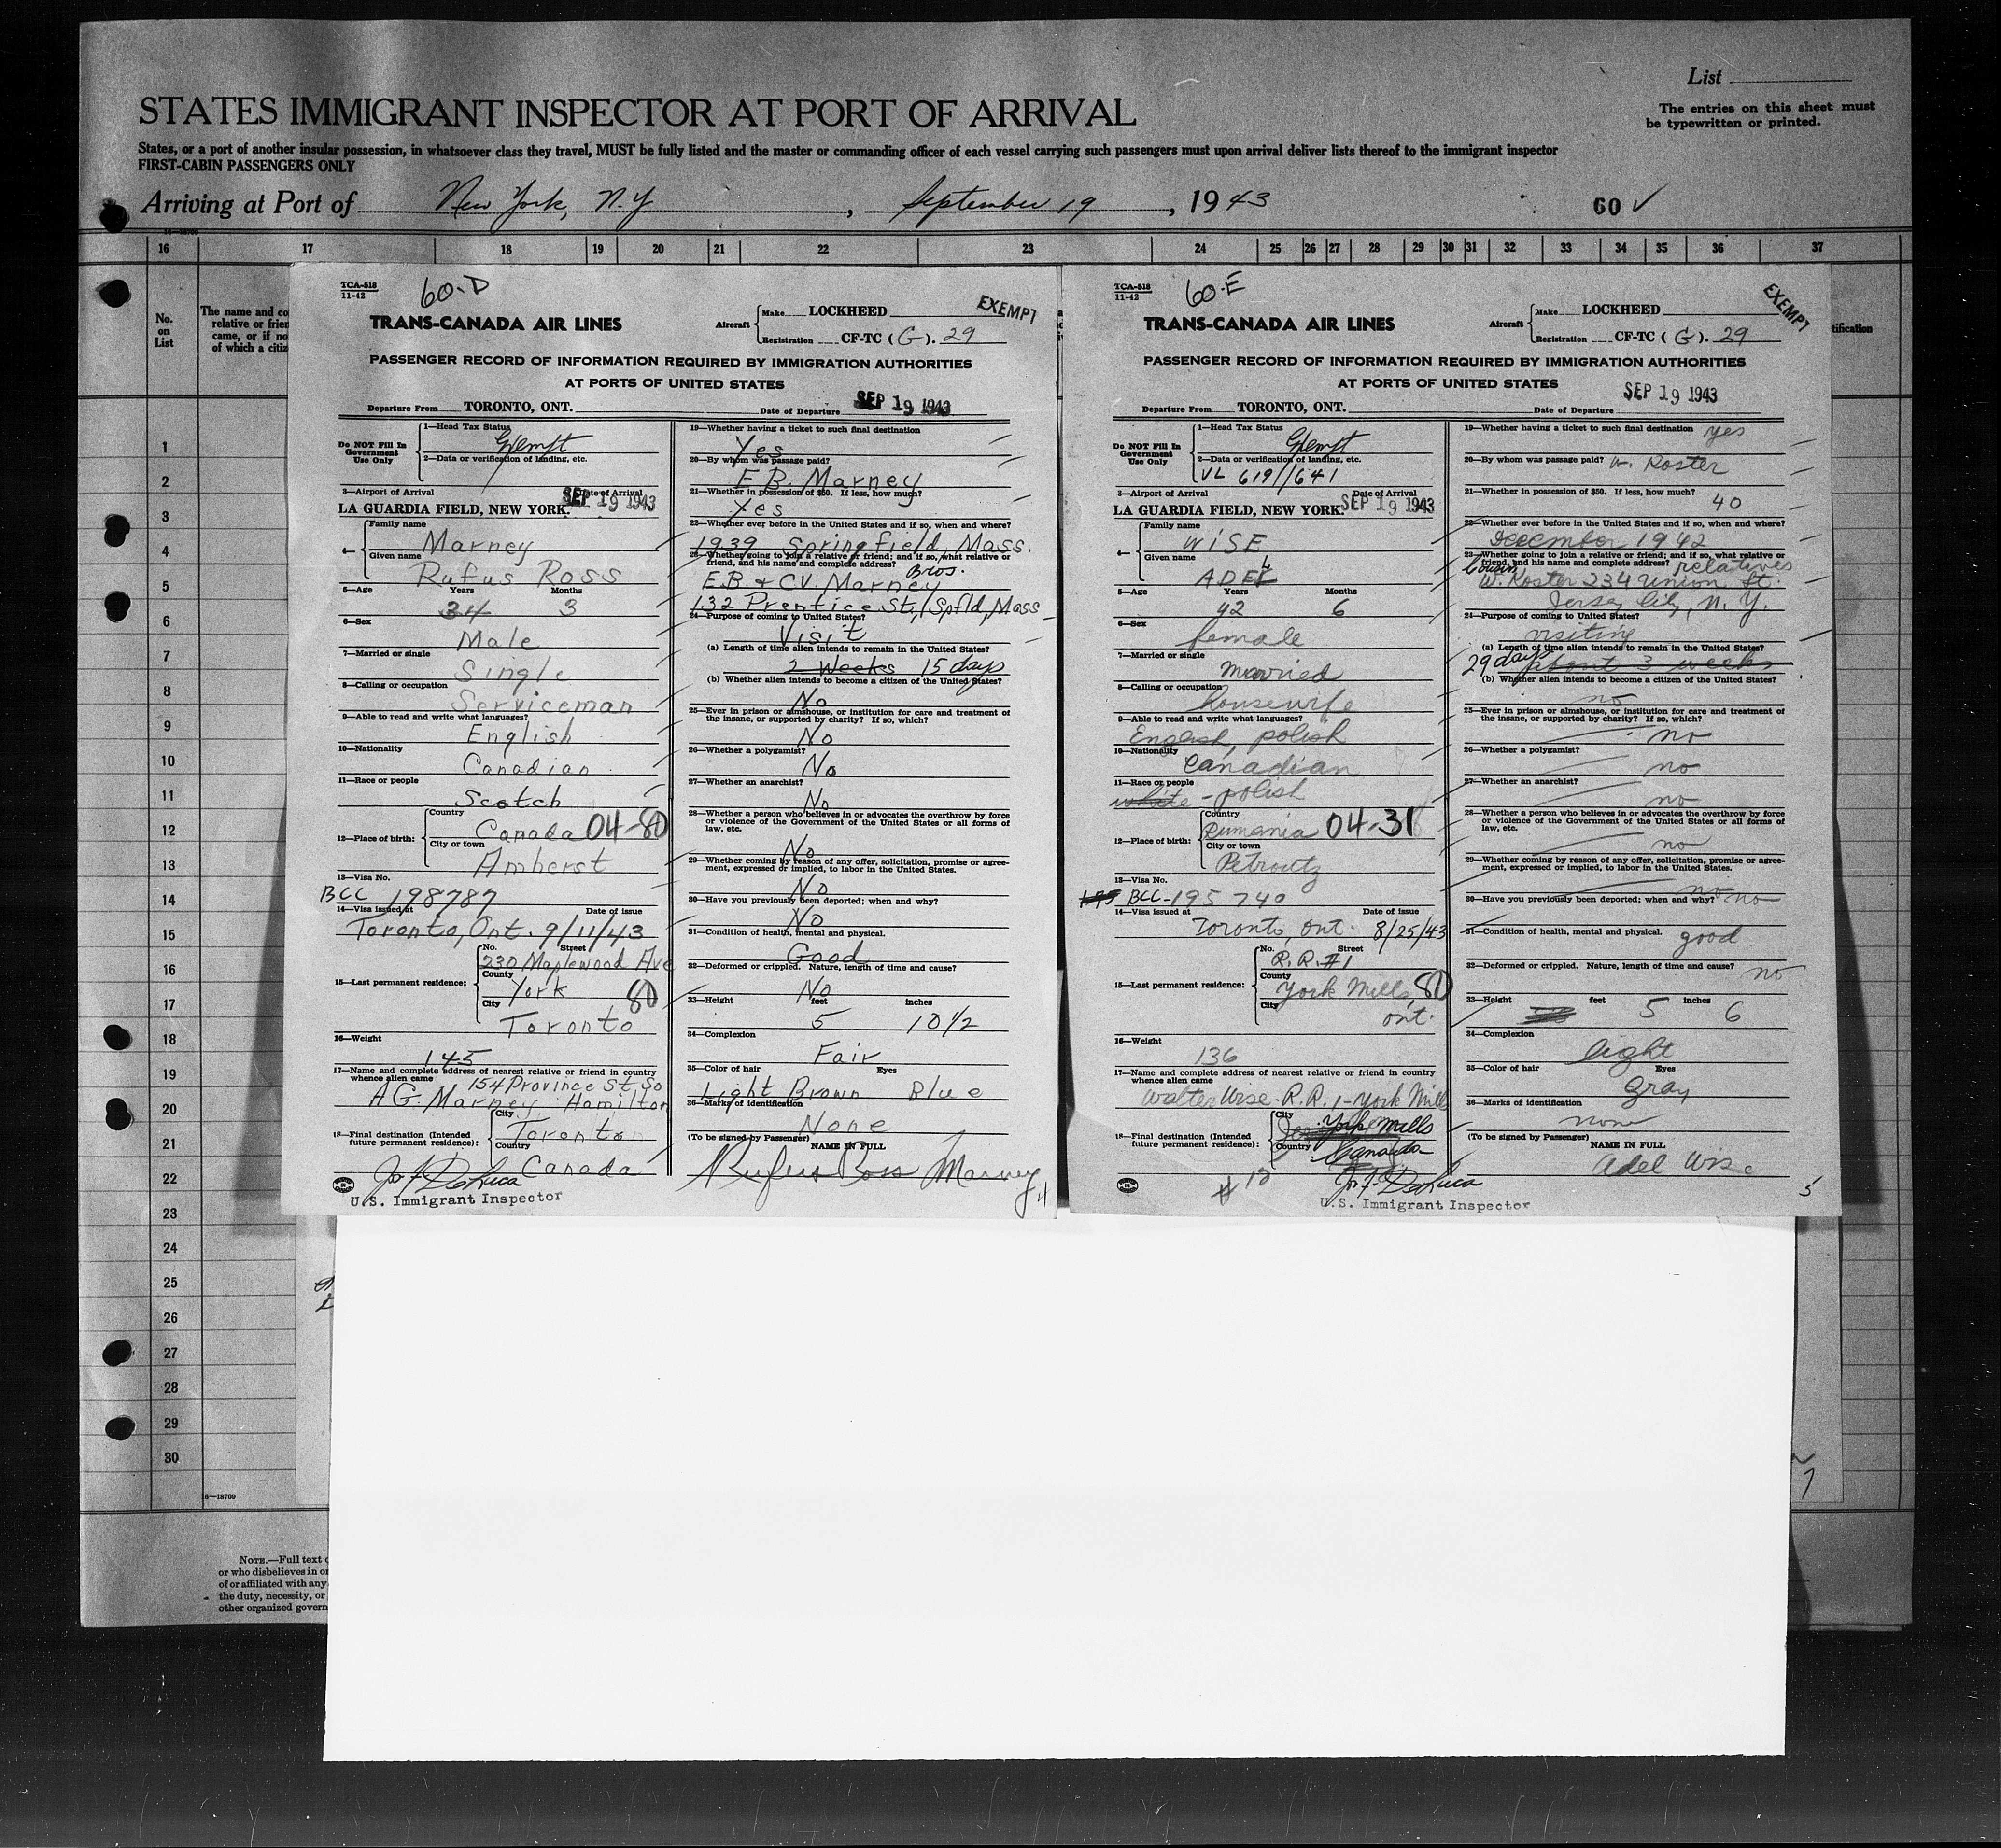 List
STATES IMMIGRANT INSPECTOR AT PORT OF ARRIVAL
The entries on this sheet must
be typewritten or printed.
States, or a port of another insular possession, in whatsoever class they travel, MUST be fully listed and the master or commanding officer of each vessel carrying such passengers must upon arrival deliver lists thereof to the immigrant inspector
FIRST-CABIN PASSENGERS ONLY
Arriving at Port of New York, N.Y, September 19, 1943 60 ✓
16 17 18 19 20 21 22 23 24 25 26 27 28 29 30 31 32 33 34 35 36 37
No.
on
List
The name and co
relative or frien
came, or if no
of which a citiz
tification
1
2
3
4
5
6
7
8
9
10
11
12
13
14
15
16
17
18
19
20
21
22
23
24
25
26
27
28
29
30
16—18709
NOTE.—Full text o
or who disbelieves in or
of or affiliated with any
the duty, necessity, or
other organized govern
TCA-518
11-42
60-D
EXEMPT
TRANS-CANADA AIR LINES
Aircraft Make LOCKHEED
Registration CF-TC (G). 29
PASSENGER RECORD OF INFORMATION REQUIRED BY IMMIGRATION AUTHORITIES
AT PORTS OF UNITED STATES
Departure From TORONTO, ONT. Date of Departure SEP 19 1943
Do NOT Fill In
Government
Use Only
1—Head Tax Status
Exempt
2—Data or verification of landing, etc.
3—Airport of Arrival Date of Arrival
LA GUARDIA FIELD, NEW YORK. SEP 19 1943
4— Family name
Marney
Given name
Rufus Ross
5—Age Years Months
34 3
6—Sex
Male
7—Married or single
Single
8—Calling or occupation
Serviceman
9—Able to read and write what languages?
English
10—Nationality
Canadian
11—Race or people
Scotch
12—Place of birth: Country
Canada 04-80
City or town
Amherst
13—Visa No.
BCC 198787
14—Visa issued at Date of issue
Toronto, Ont. 9/11/43
15—Last permanent residence: No. Street
230 Maplewood Ave
County
York 80
City
Toronto
16—Weight
145
17—Name and complete address of nearest relative or friend in country
whence alien came
154 Province St. So
A G. Marney Hamilton
18—Final destination (Intended
future permanent residence): City
Toronto
Country
Canada
Jo. F. DeLuca
U.S. Immigrant Inspector
19—Whether having a ticket to such final destination
Yes
20—By whom was passage paid?
E B. Marney
21—Whether in possession of $50. If less, how much?
Yes
22—Whether ever before in the United States and if so, when and where?
1939 Springfield Mass.
23—Whether going to join a relative or friend; and if so, what relative or
friend, and his name and complete address?
Bros.
E.B. + C.V. Marney
132 Prentice St. / Spfld, Mass
24—Purpose of coming to United States?
Visit
(a) Length of time alien intends to remain in the United States?
2 Weeks 15 days
(b) Whether alien intends to become a citizen of the United States?
No
25—Ever in prison or almshouse, or institution for care and treatment of
the insane, or supported by charity? If so, which?
No
26—Whether a polygamist?
No
27—Whether an anarchist?
No
28—Whether a person who believes in or advocates the overthrow by force
or violence of the Government of the United States or all forms of
law, etc.
No
29—Whether coming by reason of any offer, solicitation, promise or agree-
ment, expressed or implied, to labor in the United States.
No
30—Have you previously been deported; when and why?
No
31—Condition of health, mental and physical.
Good
32—Deformed or crippled. Nature, length of time and cause?
No
33—Height feet inches
5 10 1/2
34—Complexion
Fair
35—Color of hair Eyes
Light Brown Blue
36—Marks of identification
None
(To be signed by Passenger) NAME IN FULL
Rufus Ross Marney
4
TCA-518
11-42
60-E
EXEMPT
TRANS-CANADA AIR LINES
Aircraft Make LOCKHEED
Registration CF-TC (G). 29
PASSENGER RECORD OF INFORMATION REQUIRED BY IMMIGRATION AUTHORITIES
AT PORTS OF UNITED STATES
Departure From TORONTO, ONT. Date of Departure SEP 19 1943
Do NOT Fill In
Government
Use Only
1—Head Tax Status
Exempt
2—Data or verification of landing, etc.
VL 619//641
3—Airport of Arrival Date of Arrival
LA GUARDIA FIELD, NEW YORK. SEP 19 1943
4— Family name
WISE
Given name
ADEL
5—Age Years Months
42 6
6—Sex
female
7—Married or single
married
8—Calling or occupation
housewife
9—Able to read and write what languages?
English, polish
10—Nationality
Canadian
11—Race or people
white - polish
12—Place of birth: Country
Rumania 04-31
City or town
Petroutz
13—Visa No.
BCC-195 740
14—Visa issued at Date of issue
Toronto, ont. 8/25/43
15—Last permanent residence: No. Street
R.R.#1
County
York Mills, 80
City
ont.
16—Weight
136
17—Name and complete address of nearest relative or friend in country
whence alien came
Walter Wise. R.R. 1-York Mills
18—Final destination (Intended
future permanent residence): City
York Mills
Country
Canada
Jo. F. DeLuca
# 12
U.S. Immigrant Inspector
19—Whether having a ticket to such final destination yes
20—By whom was passage paid? W. Koster
21—Whether in possession of $50. If less, how much?
40
22—Whether ever before in the United States and if so, when and where?
December 1942
23—Whether going to join a relative or friend; and if so, what relative or
friend, and his name and complete address? relatives
Cousin
W. Koster 234 Union St.
Jersey City, N.Y.
24—Purpose of coming to United States?
visiting
(a) Length of time alien intends to remain in the United States?
29 days about 3 weeks
(b) Whether alien intends to become a citizen of the United States?
no
25—Ever in prison or almshouse, or institution for care and treatment of
the insane, or supported by charity? If so, which?
no
26—Whether a polygamist?
no
27—Whether an anarchist?
no
28—Whether a person who believes in or advocates the overthrow by force
or violence of the Government of the United States or all forms of
law, etc.
no
29—Whether coming by reason of any offer, solicitation, promise or agree-
ment, expressed or implied, to labor in the United States.
no
30—Have you previously been deported; when and why? no
31—Condition of health, mental and physical.
good
32—Deformed or crippled. Nature, length of time and cause?
no
33—Height feet inches
5 6
34—Complexion
light
35—Color of hair Eyes
gray
36—Marks of identification
none
(To be signed by Passenger) NAME IN FULL
Adel Wise
5